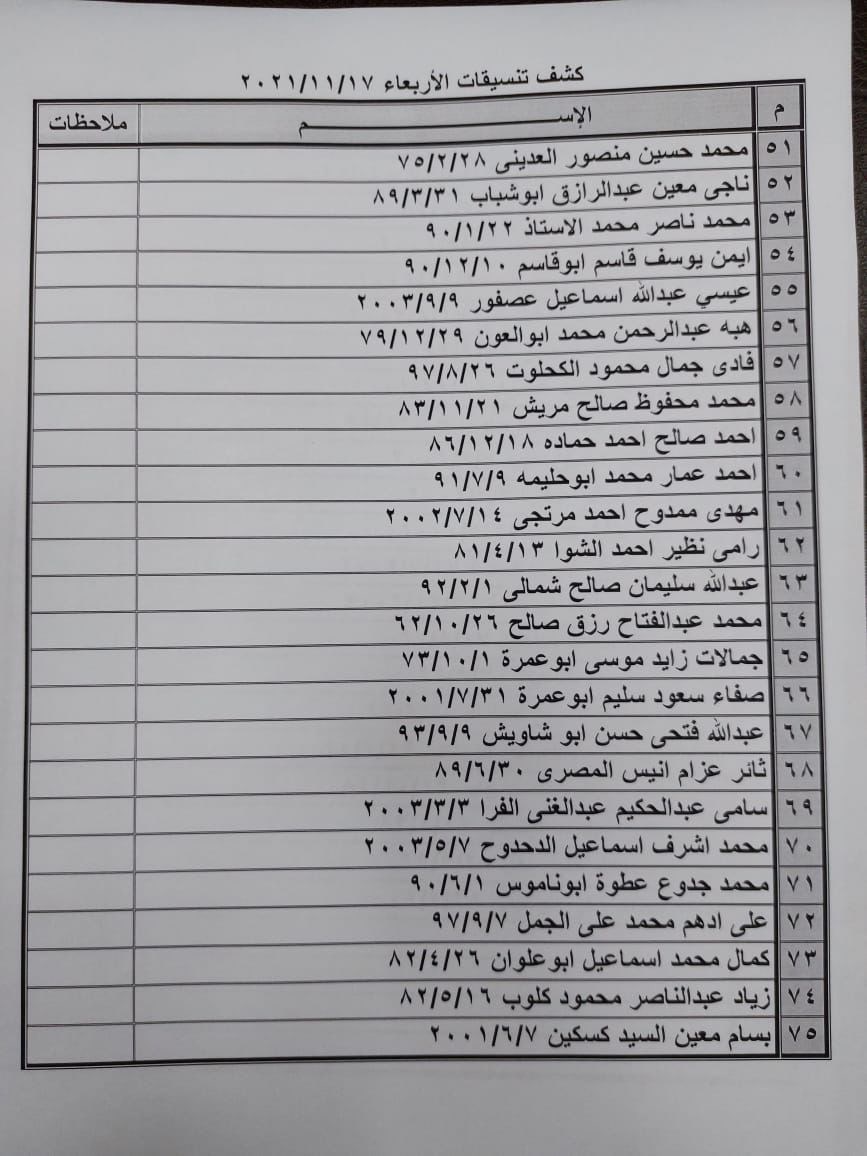 كشف تنسيقات الأربعاء ٢٠٢١/١١/١٧
م الإســـــم ملاحظات
٥١ محمد حسين منصور العدينى ٧٥/٢/٢٨
٥٢ ناجى معين عبدالرازق ابوشباب ٨٩/٣/٣١
٥٣ محمد ناصر محمد الاستاذ ٩٠/١/٢٢
٥٤ ايمن يوسف قاسم ابوقاسم ٩٠/١٢/١٠
٥٥ عيسي عبدالله اسماعيل عصفور ٢٠٠٣/٩/٩
٥٦ هبه عبدالرحمن محمد ابوالعون ٧٩/١٢/٢٩
٥٧ فادى جمال محمود الكحلوت ٩٧/٨/٢٦
٥٨ محمد محفوظ صالح مريش ٨٣/١١/٢١
٥٩ احمد صالح احمد حماده ٨٦/١٢/١٨
٦٠ احمد عمار محمد ابوحليمه ٩١/٧/٩
٦١ مهدى ممدوح احمد مرتجى ٢٠٠٢/٧/١٤
٦٢ رامى نظير احمد الشوا ٨١/٤/١٣
٦٣ عبدالله سليمان صالح شمالى ٩٢/٢/١
٦٤ محمد عبدالفتاح رزق صالح ٦٢/١٠/٢٦
٦٥ جمالات زايد موسى ابوعمرة ٧٣/١٠/١
٦٦ صفاء سعود سليم ابوعمرة ٢٠٠١/٧/٣١
٦٧ عبدالله فتحى حسن ابو شاويش ٩٣/٩/٩
٦٨ ثائر عزام انيس المصرى ٨٩/٦/٣٠
٦٩ سامى عبدالحكيم عبدالغنى الفرا ٢٠٠٣/٣/٣
٧٠ محمد اشرف اسماعيل الدحدوح ٢٠٠٣/٥/٧
٧١ محمد جدوع عطوة ابوناموس ٩٠/٦/١
٧٢ على ادهم محمد على الجمل ٩٧/٩/٧
٧٣ كمال محمد اسماعيل ابوعلوان ٨٢/٤/٢٦
٧٤ زياد عبدالناصر محمود كلوب ٨٢/٥/١٦
٧٥ بسام معين السيد كسكين ٢٠٠١/٦/٧